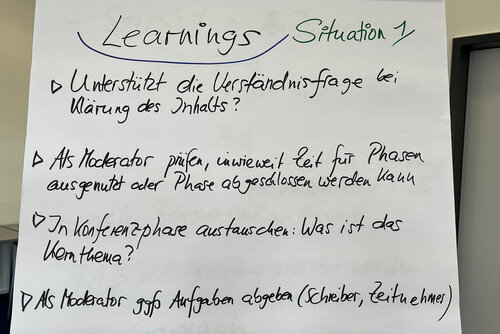 Learnings Situation 1
▷ Unterstützt die Verständnisfrage bei
Klärung des Inhalts?
▷ Als Moderator prüfen, inwieweit Zeit für Phasen
ausgenutzt oder Phase abgeschlossen werden kann
▷ In Konferenzphase austauschen: Was ist das
Kernthema?
▷ Als Moderator ggfs Aufgaben abgeben (Schreiber, Zeitnehmer)